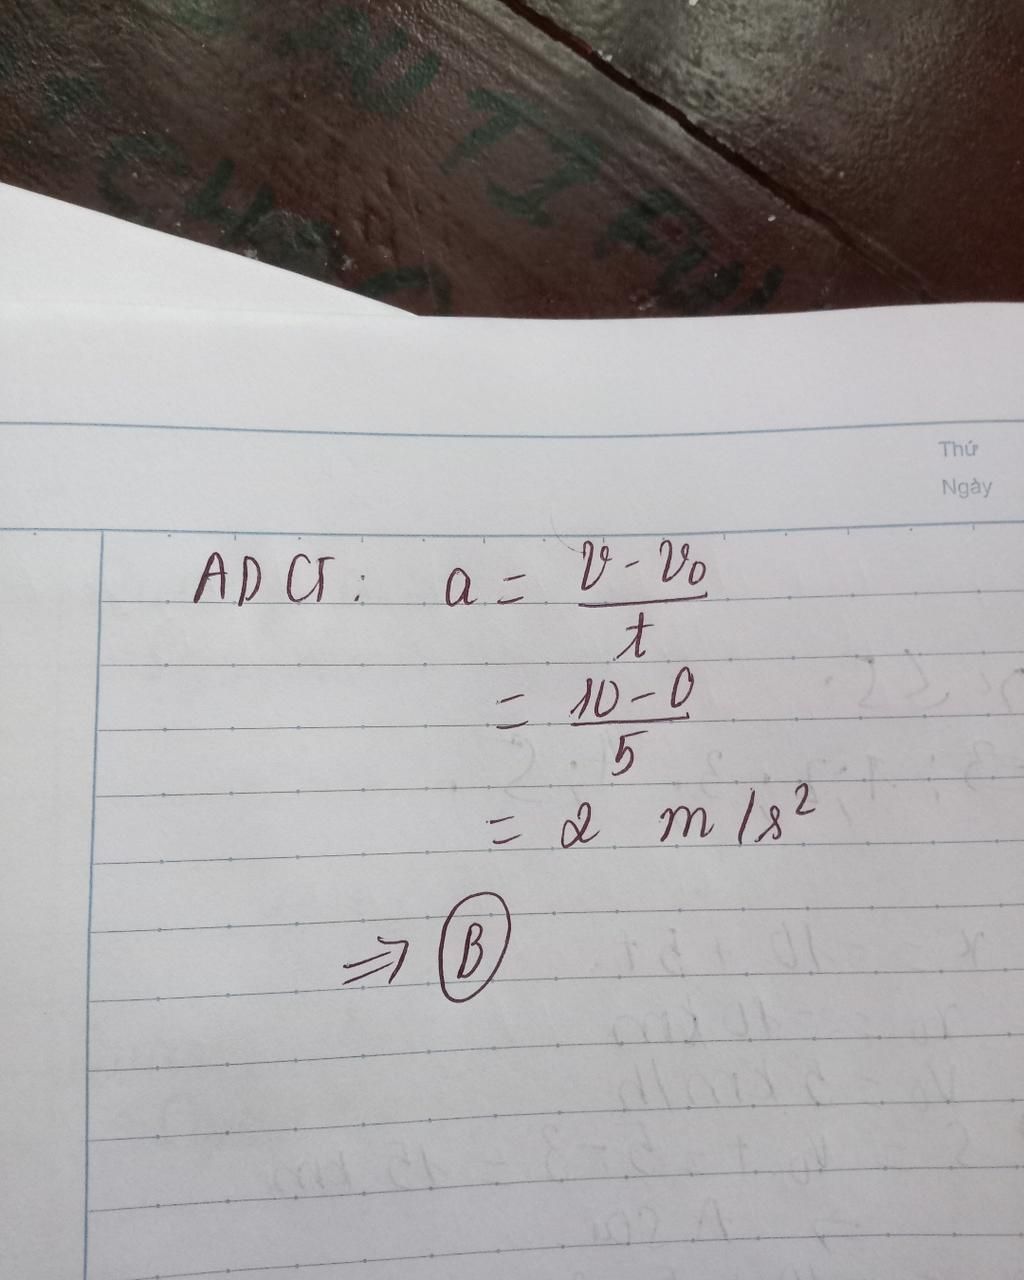 Thứ
Ngày
ADCT: a = v - v₀
t
= 10 - 0
5
= 2 m/s²
⇒ B